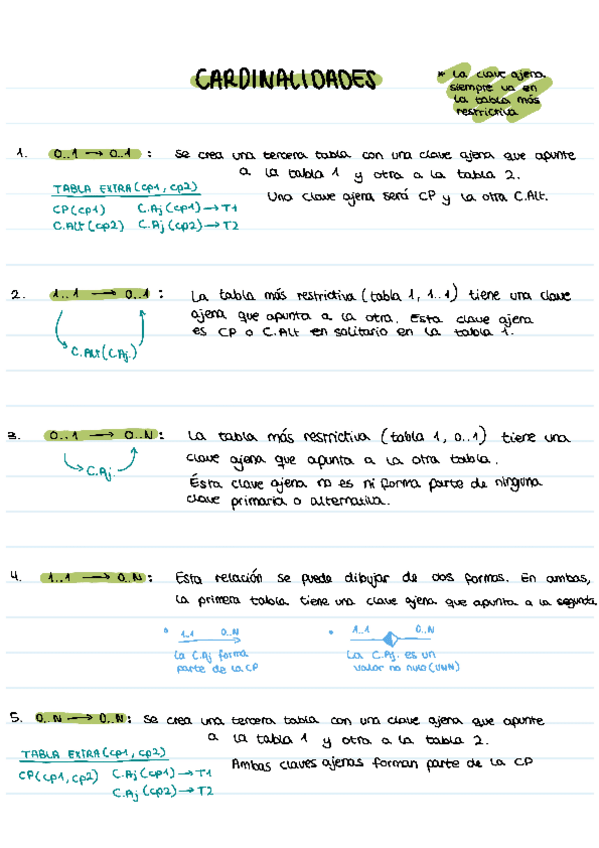 CARDINALIDADES
* La clave ajena
siempre va en
la tabla más
restrictiva
1. 0..1 → 0..1 : Se crea una tercera tabla con una clave ajena que apunte
a la tabla 1 y otra a la tabla 2.
Una clave ajena será CP y la otra C.Alt.
TABLA EXTRA (cp1, cp2)
CP (cp1) C.Aj (cp1) → T1
C.Alt (cp2) C.Aj (cp2) → T2
2. 1..1 → 0..1 : La tabla más restrictiva (tabla 1, 1..1) tiene una clave
ajena que apunta a la otra. Esta clave ajena
es CP o C.Alt en solitario en la tabla 1.
C.Alt (C.Aj.)
3. 0..1 → 0..N : La tabla más restrictiva (tabla 1, 0..1) tiene una
clave ajena que apunta a la otra tabla.
Ésta clave ajena no es ni forma parte de ninguna
clave primaria o alternativa.
C.Aj.
4. 1..1 → 0..N : Esta relación se puede dibujar de dos formas. En ambas,
la primera tabla tiene una clave ajena que apunta a la segunda.
• 1..1 0..N
La C.Aj forma
parte de la CP
• 1..1 0..N
La C.Aj. es un
valor no nulo (VNN)
5. 0..N → 0..N : Se crea una tercera tabla con una clave ajena que apunte
a la tabla 1 y otra a la tabla 2.
Ambas claves ajenas forman parte de la CP
TABLA EXTRA (cp1, cp2)
CP (cp1, cp2) C.Aj (cp1) → T1
C.Aj (cp2) → T2